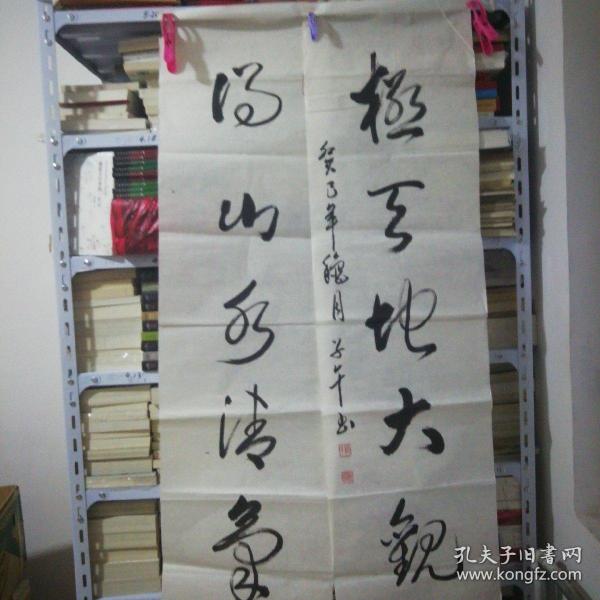 極天地大觀
得山水清氣
癸巳年穐月 子午書
孔夫子旧書网
www.kongfz.com